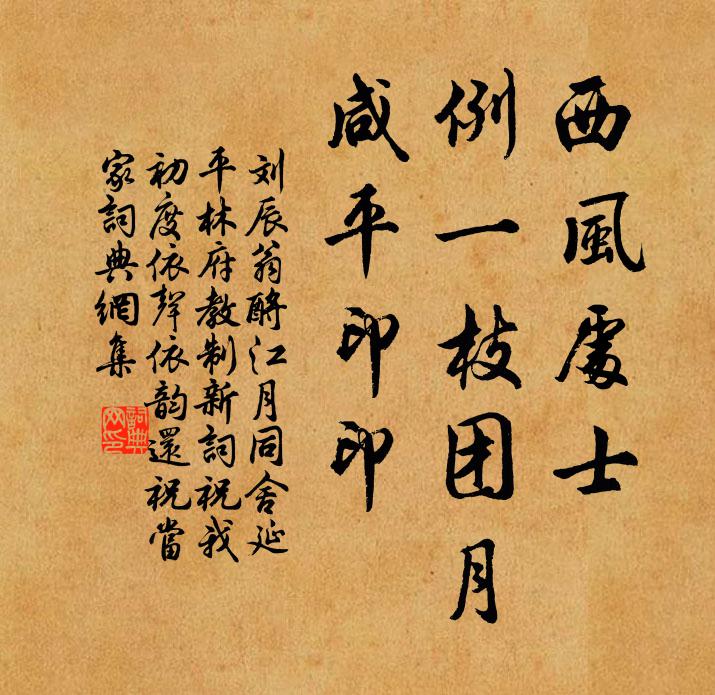 西風處士
例一枝团月
咸平印印
刘辰翁酹江月同舍延
平林府教制新詞祝我
初度依聲依韵還祝當
家詞典網集
詞典
网印